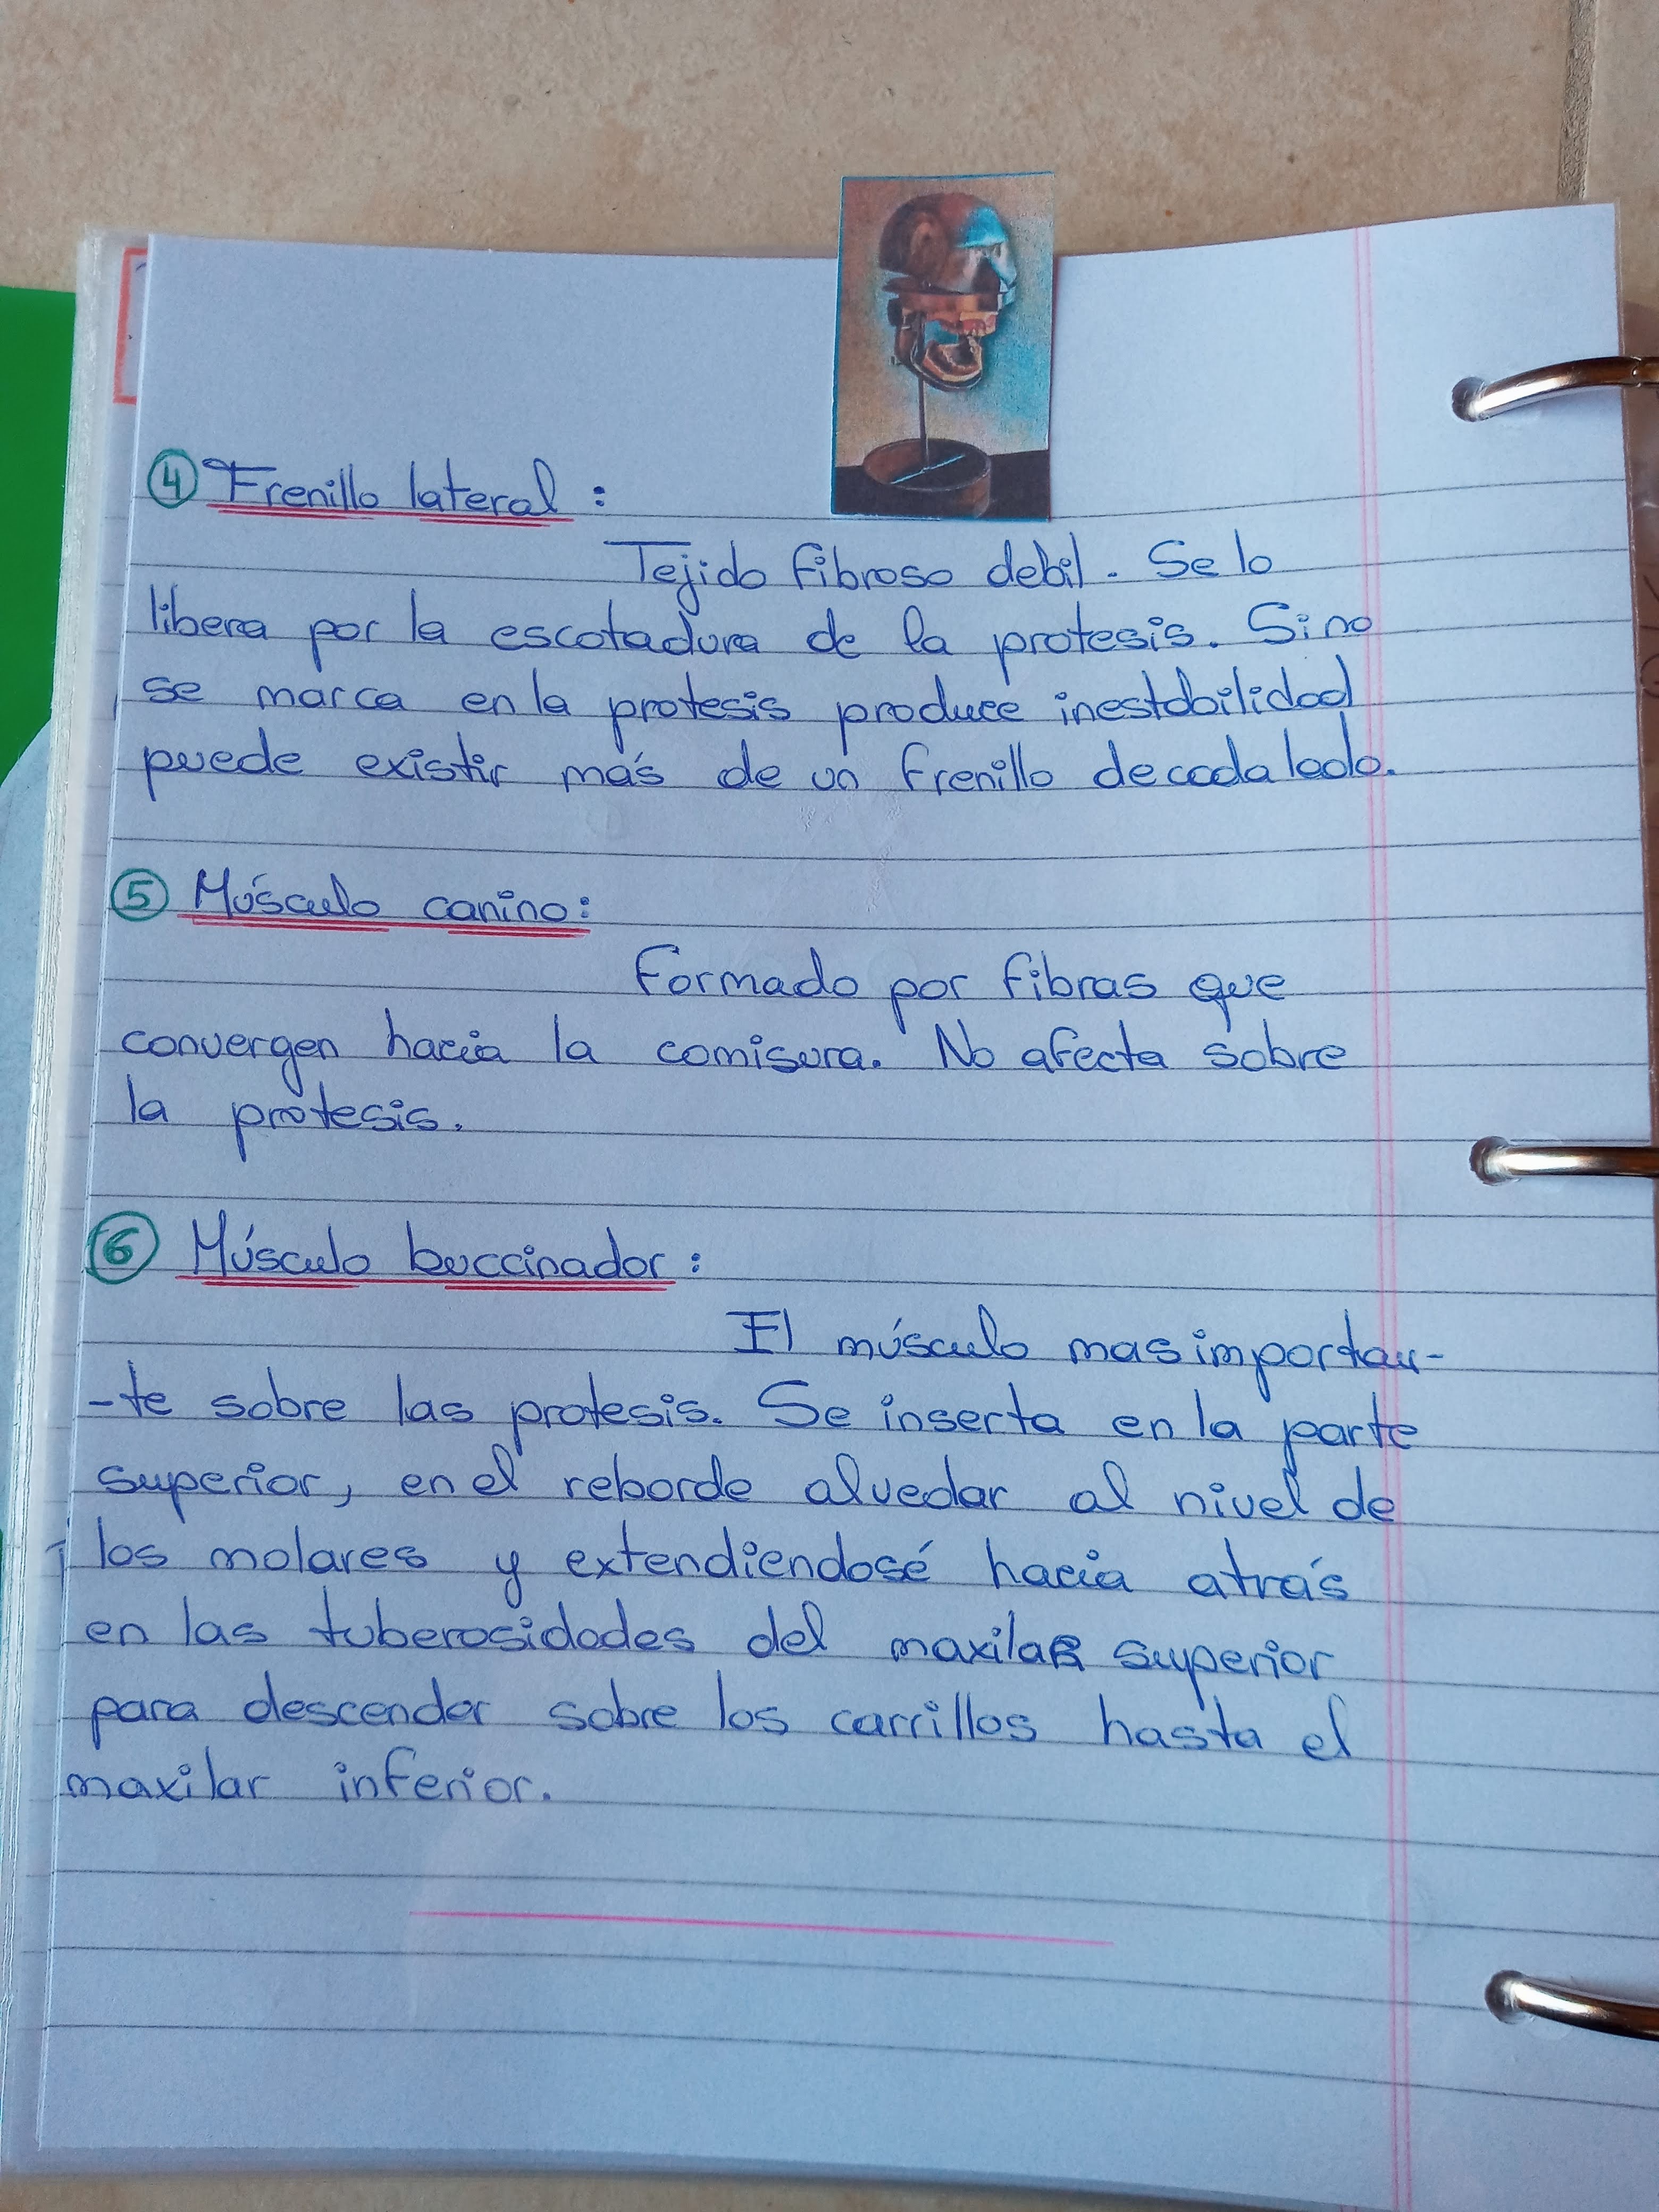 ④ Frenillo lateral :
Tejido fibroso debil. Se lo
libera por la escotadura de la protesis. Si no
se marca en la protesis produce inestabilidad
puede existir más de un frenillo de cada lado.
⑤ Músculo canino:
Formado por fibras que
convergen hacia la comisura. No afecta sobre
la protesis.
⑥ Músculo buccinador :
El músculo mas importan-
-te sobre las protesis. Se inserta en la parte
superior, en el reborde alveolar al nivel de
los molares y extendiendosé hacia atrás
en las tuberosidades del maxilar superior
para descender sobre los carrillos hasta el
maxilar inferior.